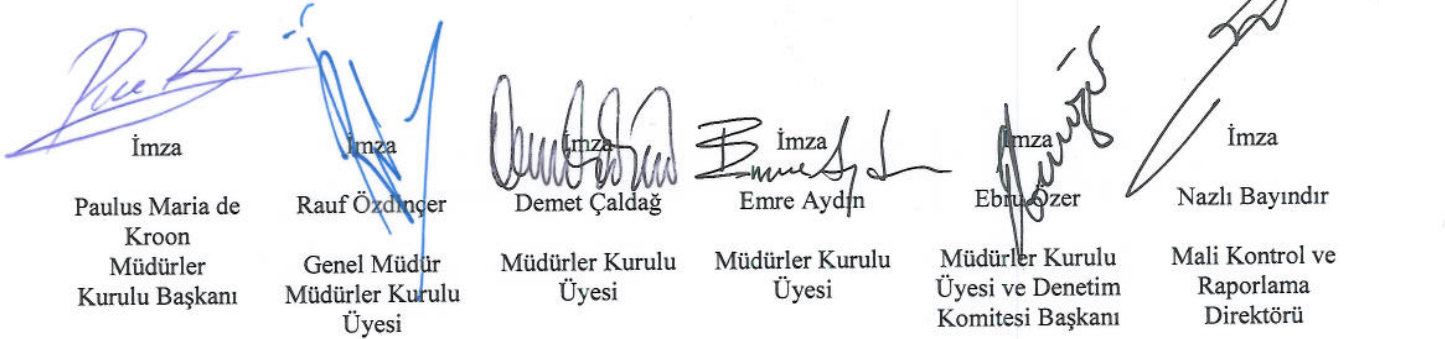 İmza
Paulus Maria de
Kroon
Müdürler
Kurulu Başkanı
İmza
Rauf Özdinçer
Genel Müdür
Müdürler Kurulu
Üyesi
İmza
Demet Çaldağ
Müdürler Kurulu
Üyesi
İmza
Emre Aydın
Müdürler Kurulu
Üyesi
İmza
Ebru Özer
Müdürler Kurulu
Üyesi ve Denetim
Komitesi Başkanı
İmza
Nazlı Bayındır
Mali Kontrol ve
Raporlama
Direktörü